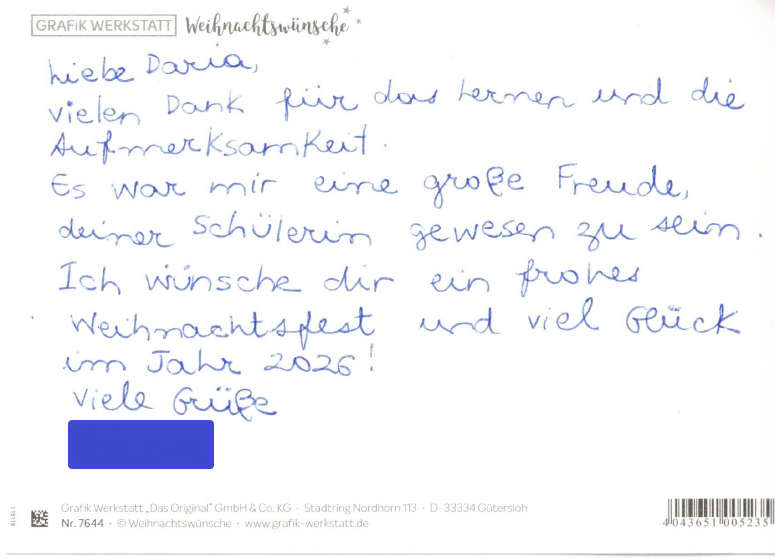 GRAFIK WERKSTATT Weihnachtswünsche
Liebe Daria,
vielen Dank für das Lernen und die
Aufmerksamkeit.
Es war mir eine große Freude,
deiner Schülerin gewesen zu sein.
Ich wünsche dir ein frohes
Weihnachtsfest und viel Glück
im Jahr 2026!
Viele Grüße
Grafik Werkstatt „Das Original“ GmbH & Co. KG · Stadtring Nordhorn 113 · D-33334 Gütersloh
Nr. 7644 · © Weihnachtswünsche · www.grafik-werkstatt.de
4 043651 005235